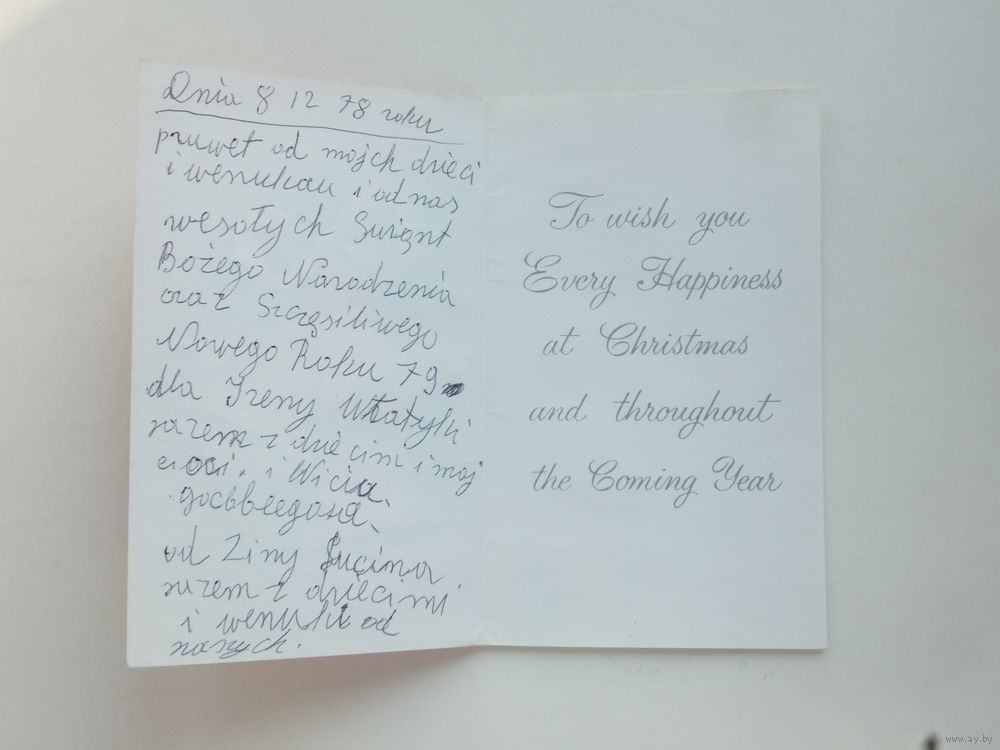 Dnia 8 12 78 roku
pruwet od mojch dzieci
i wenukau i od nas
wesołych Swiąnt
Bożego Narodzenia
oraz Szczęsiliwego
Nowego Roku 79
dla Ireny
razem z dziecim i moj
i Wicia
od Ziny
razem z dziecimi
i wenuki od
naszych.
To wish you
Every Happiness
at Christmas
and throughout
the Coming Year
www.ay.by